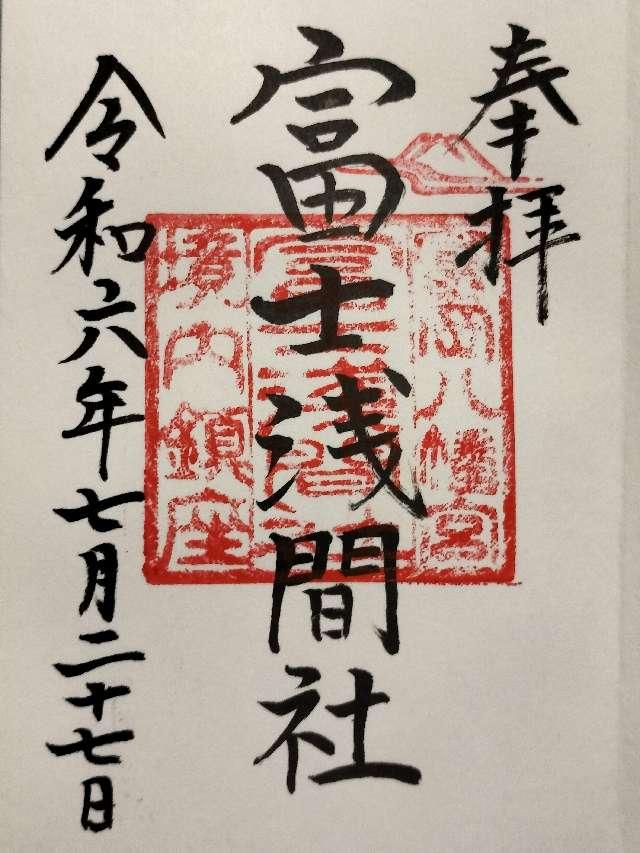 奉拝
富士浅間社
令和六年七月二十七日
八幡宮
境内鎮座